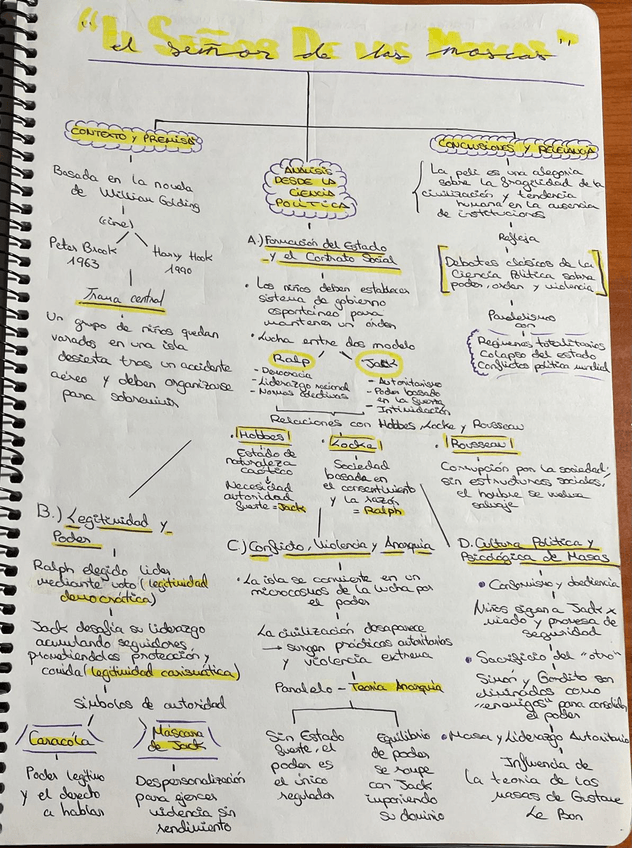 "El Señor De las Moscas"
el señor de las moscas
CONTEXTO Y PREMISA
Basada en la novela
de William Golding
(cine)
Peter Brook
1963
Harry Hook
1990
Trama central
Un grupo de niños quedan
varados en una isla
desierta tras un accidente
aéreo y deben organizarse
para sobrevivir
ANÁLISIS
DESDE LA
CIENCIA
POLÍTICA
A.) Formación del Estado
y el Contrato Social
• Los niños deben establecer
sistema de gobierno
espontáneo para
mantener un orden
• Lucha entre dos modelo
Ralp
- Democracia
- Liderazgo racional
- Normas colectivas
Jack
- Autoritarismo
- Poder basado
en la fuerza
- Intimidación
Relaciones con Hobbes, Locke y Rousseau
• Hobbes
Estado de
naturaleza
caótico
Necesidad
autoridad
fuerte = Jack
• Locke
Sociedad
basada en
el consentimiento
y la razón
= Ralph
• Rousseau
Corrupción por la sociedad;
sin estructuras sociales,
el hombre se vuelve
salvaje
CONCLUSIONES Y RELEVANCIA
La peli es una alegoría
sobre la fragilidad de la
civilización y tendencia
humana en la ausencia
de instituciones
Refleja
Debates clásicos de la
Ciencia Política sobre
poder, orden y violencia
Paralelismo
con
Regímenes totalitarios
Colapso del estado
Conflictos política mundial
B.) Legitimidad y
Poder
Ralph elegido líder
mediante voto (legitimidad
democrática)
Jack desafía su liderazgo
acumulando seguidores,
prometiéndolos protección y
comida (legitimidad carismática)
Símbolos de autoridad
Caracola
Poder legítimo
y el derecto
a hablar
Máscara
de Jack
Despersonalización
para ejercer
violencia sin
rendimiento
C.) Conflicto, Violencia y Anarquía
• La isla se convierte en un
microcosmos de la lucha por
el poder
La civilización desaparece
→ surgen prácticas autoritarias
y violencia extrema
Paralelo - Teoría Anarquía
Sin Estado
fuerte, el
poder es
el único
regulador
Equilibrio
de poder
se rompe
con Jack
imponiendo
su dominio
D. Cultura Política y
Psicológica de Masas
• Conformismo y obediencia
Niños siguen a Jack x
miedo y promesa de
seguridad
• Sacrificio del "otro"
Simon y Gordito son
eliminados como
"enemigos" para consolidar
el poder
• Masa y Liderazgo Autoritario
Influencia de
la teoría de las
masas de Gustave
Le Bon